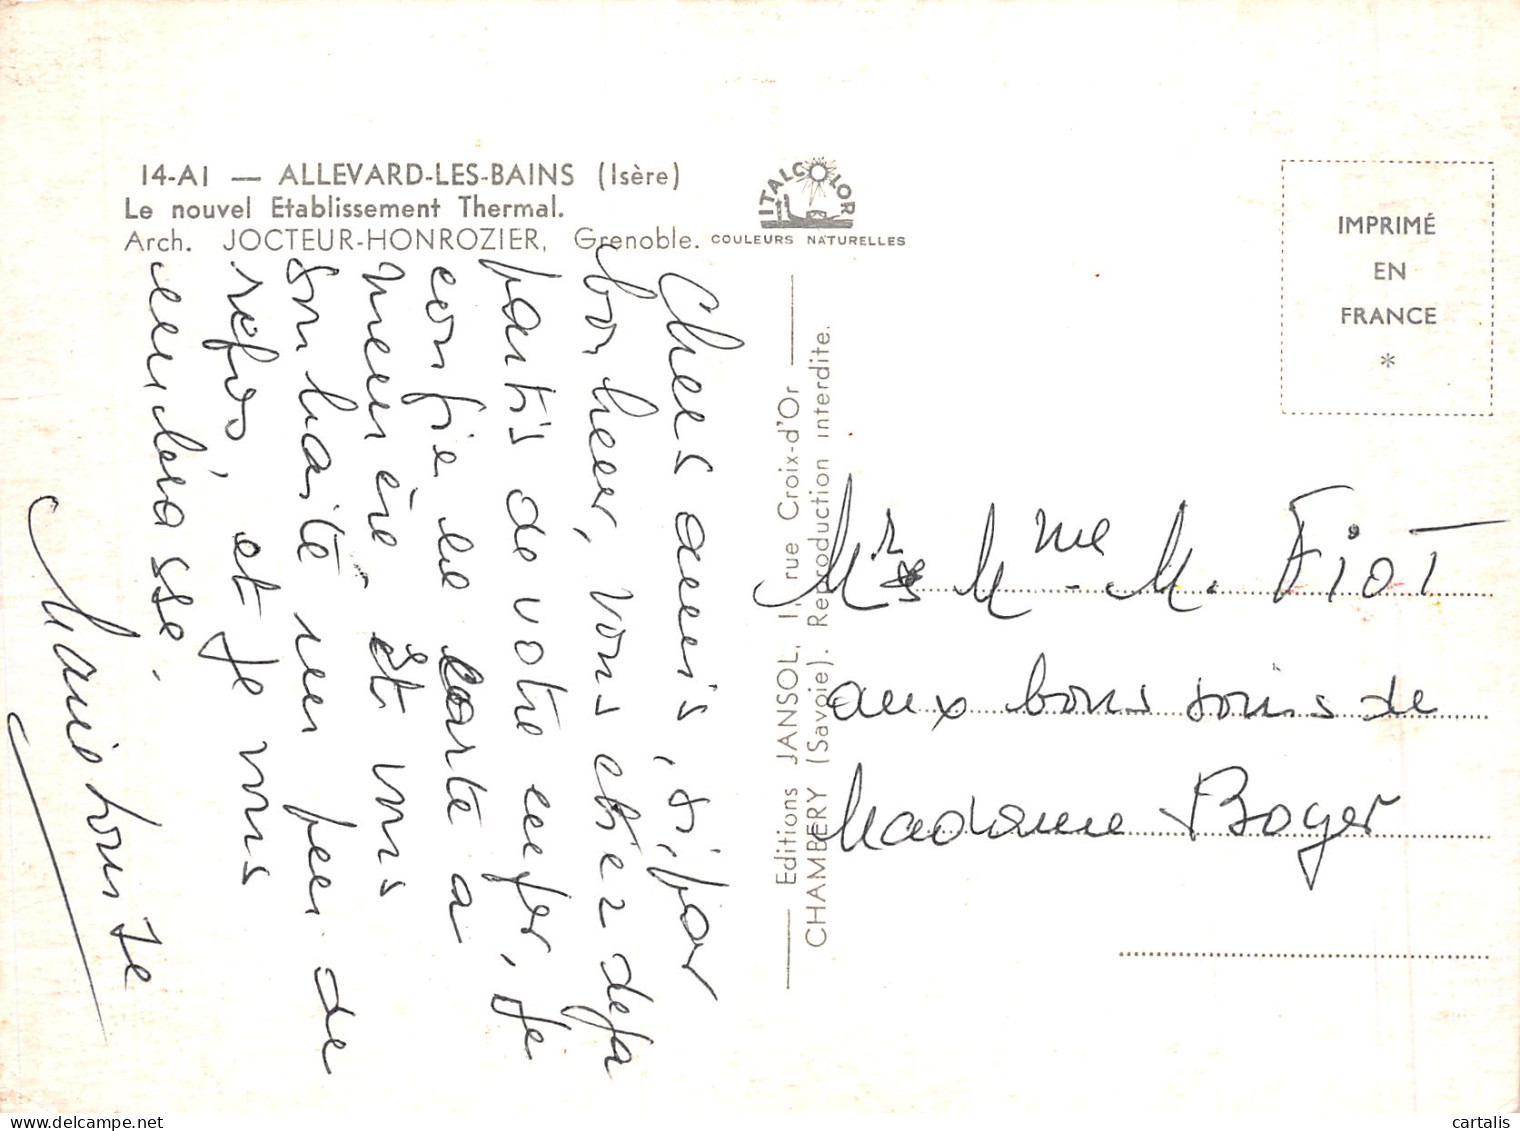 14-A1 — ALLEVARD-LES-BAINS (Isère)
Le nouvel Etablissement Thermal.
Arch. JOCTEUR-HONROZIER, Grenoble.
ITALCOLOR
COULEURS NATURELLES
IMPRIMÉ
EN
FRANCE
*
Chers amis, si, par
bonheur, vous etiez deja
partis de votre enfer, je
confie la carte à
mémère et vous
souhaite un peu de
repos, et je vous
embrasse.
Marie Louise
Editions JANSOL, 1, rue Croix-d'Or
CHAMBERY (Savoie). Reproduction interdite.
Mr & Mme M. FIOT
aux bons soins de
Madame Boyer
cartalis